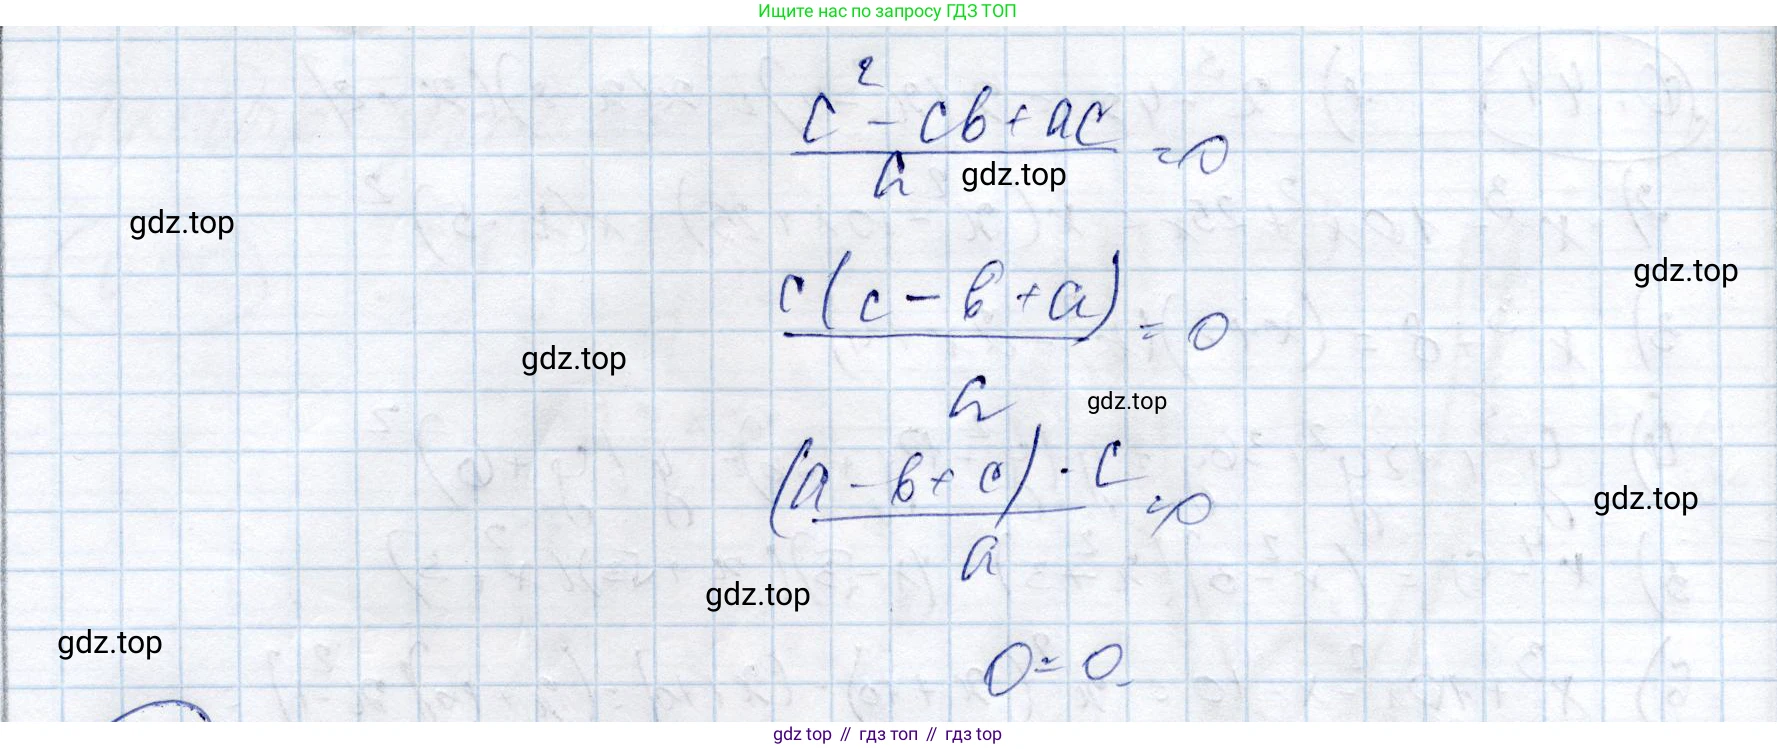 Ищите нас по запросу ГДЗ ТОП
c² - cb + ac
/ a = 0
gdz.top
gdz.top
gdz.top
c(c - b + a)
/ a = 0
gdz.top
gdz.top
(a - b + c) · c
/ a = 0
gdz.top
gdz.top
gdz.top
0 = 0.
gdz top // гдз топ // гдз top